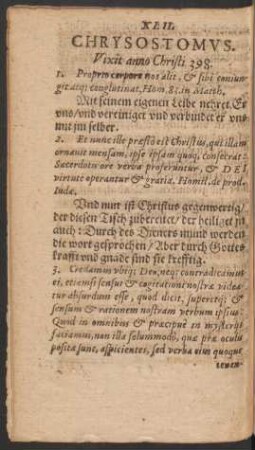 XLII.
CHRYSOSTOMVS.
Vixit anno Christi 398.
1. Proprio corpore nos alit, & sibi coniun-
git atq; conglutinat, Hom. 83. in Matth.
Mit seinem eigenen Leibe nehret Er
vns/vnd vereiniget vnd verbindet er vns
mit jm selber.
2. Et nunc ille præsto est Christus, qui illam
ornauit mensam, ipse ipsam quoq; consecrat:
Sacerdotis ore verba proferuntur, & DEI
virtute operantur & gratia. Homil. de prod.
Iudæ.
Vnd nun ist Christus gegenwertig/
der diesen Tisch zubereitet/ der heiliget jn
auch: Durch des Dieners mund werden
die wort gesprochen/ Aber durch Gottes
krafft vnd gnade sind sie krefftig.
3. Credamus vbiq; Deo, neq; contradicamus
ei, etiamsi sensui & cogitationi nostræ videa-
tur absurdum esse, quod dicit, superetq; &
sensum & rationem nostram verbum ipsius.
Quod in omnibus & præcipuè in mysterijs
faciamus, non illa solummodo, quæ præ oculis
posita sunt, aspicientes, sed verba eius quoque
tenen-